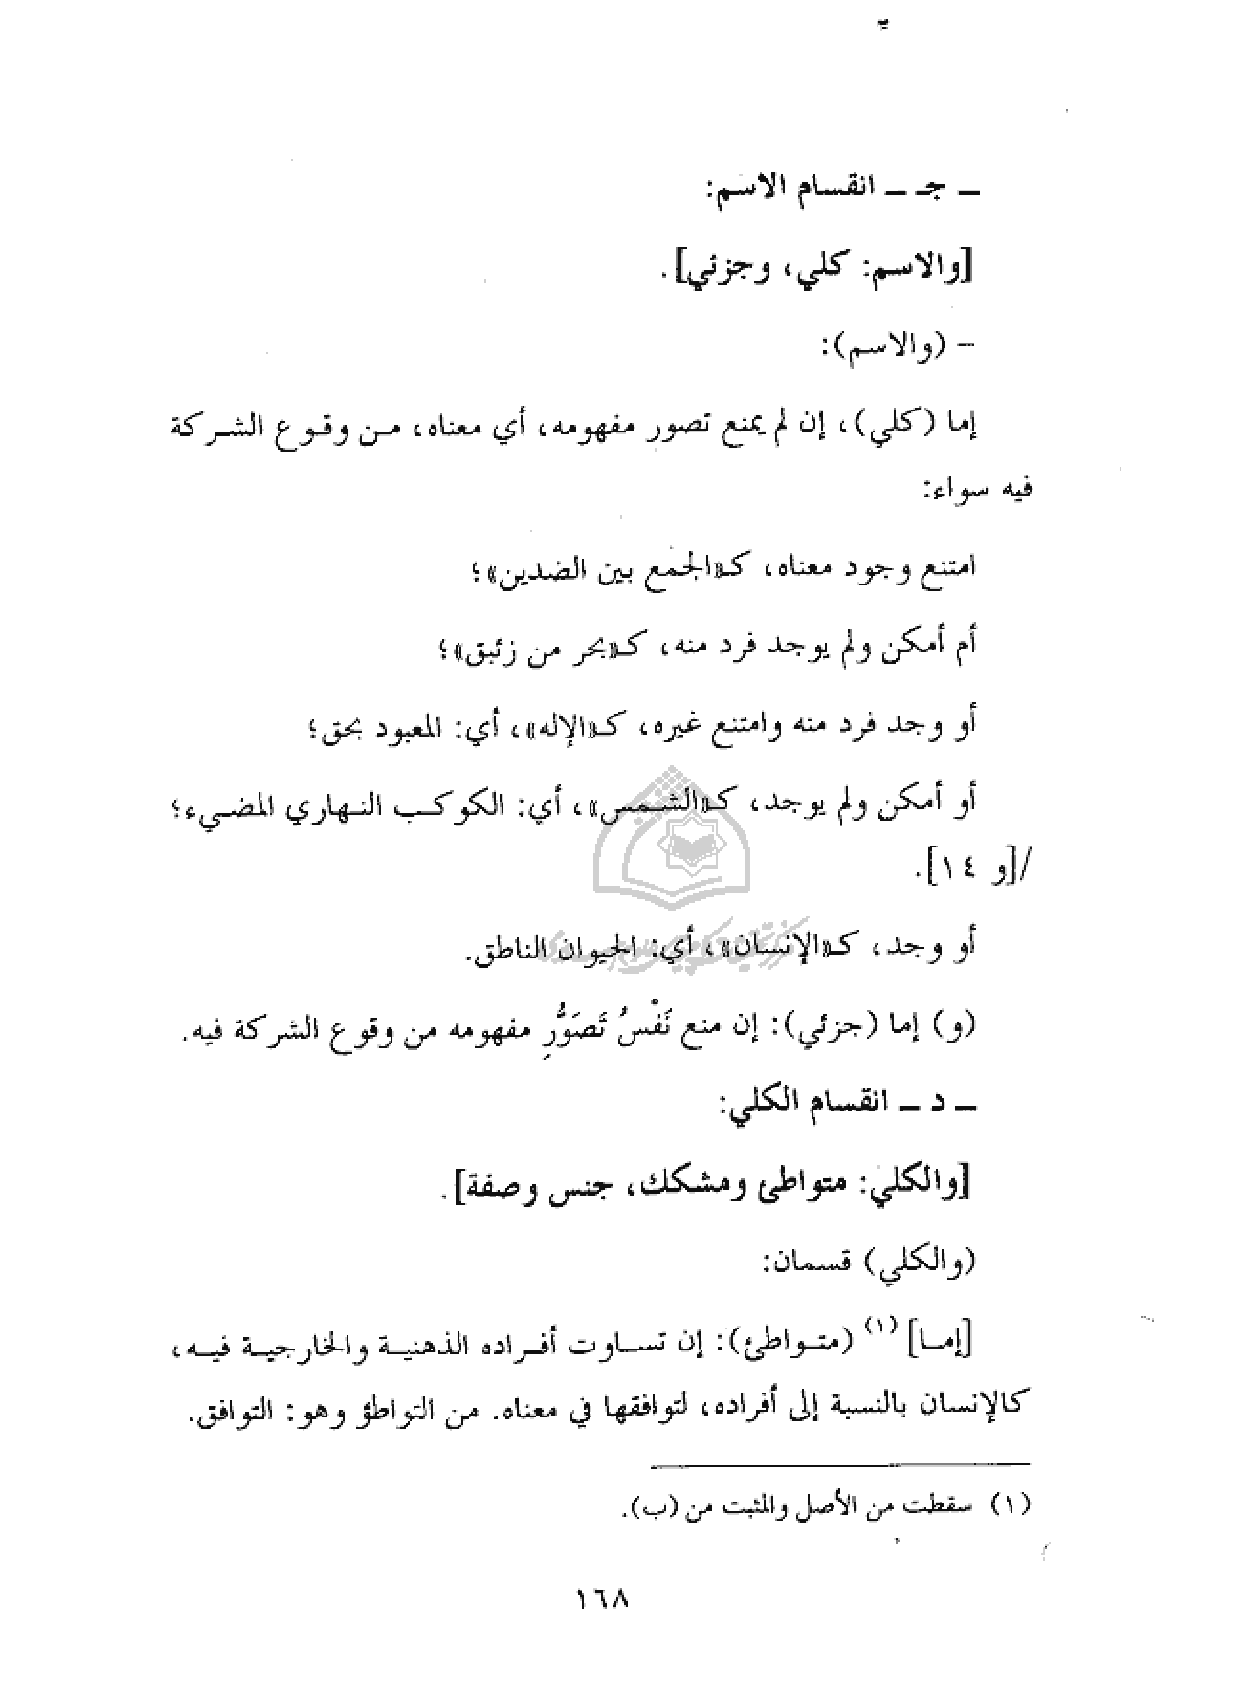 ـ جـ ـ انقسام الاسم:
[والاسم: كلي، وجزئي].
- (والاسم):
إما (كلي)، إن لم يمنع تصور مفهومه، أي معناه، مـن وقـوع الشـركة
فيه سواء:
امتنع وجود معناه، كـ«الجمع بين الضدين»؛
أم أمكن ولم يوجد فرد منه، كـ«بحر من زئبق»؛
أو وجد فرد منه وامتنع غيره، كـ«الإله»، أي: المعبود بحق؛
أو أمكن ولم يوجد، كـ«الشـمس»، أي: الكوكـب النـهاري المضـيء؛
/[و ١٤].
أو وجد، كـ«الإنسان»، أي: الحيوان الناطق.
(و) إما (جزئي): إن منع نَفْسُ تَصَوُّرِ مفهومه من وقوع الشركة فيه.
ـ د ـ انقسام الكلي:
[والكلي: متواطئ ومشكك، جنس وصفة].
(والكلي) قسمان:
[إمـا] (١) (متـواطئ): إن تسـاوت أفـراده الذهنيـة والخارجيـة فيـه،
كالإنسان بالنسبة إلى أفراده، لتوافقها في معناه. من التواطؤ وهو: التوافق.
(١) سقطت من الأصل والمثبت من (ب).
١٦٨